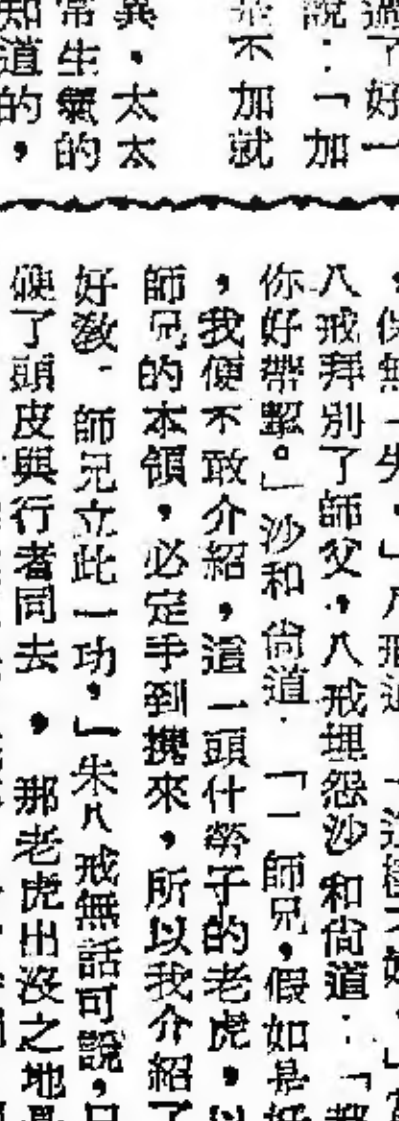 過了好一
說：「加
不加就
異，太太
常生氣的
知道的，
，保無一失，」八戒道
八戒拜別了師父，八戒埋怨沙和尙道：「
你好帶挈。」沙和尙道：「一師兄，假如是
，我便不敢介紹，這一頭什勞子的老虎，以
師兄的本領，必定手到擕來，所以我介紹了
好敎師兄立此一功，」朱八戒無話可說，只
硬了頭皮與行者同去，那老虎出沒之地